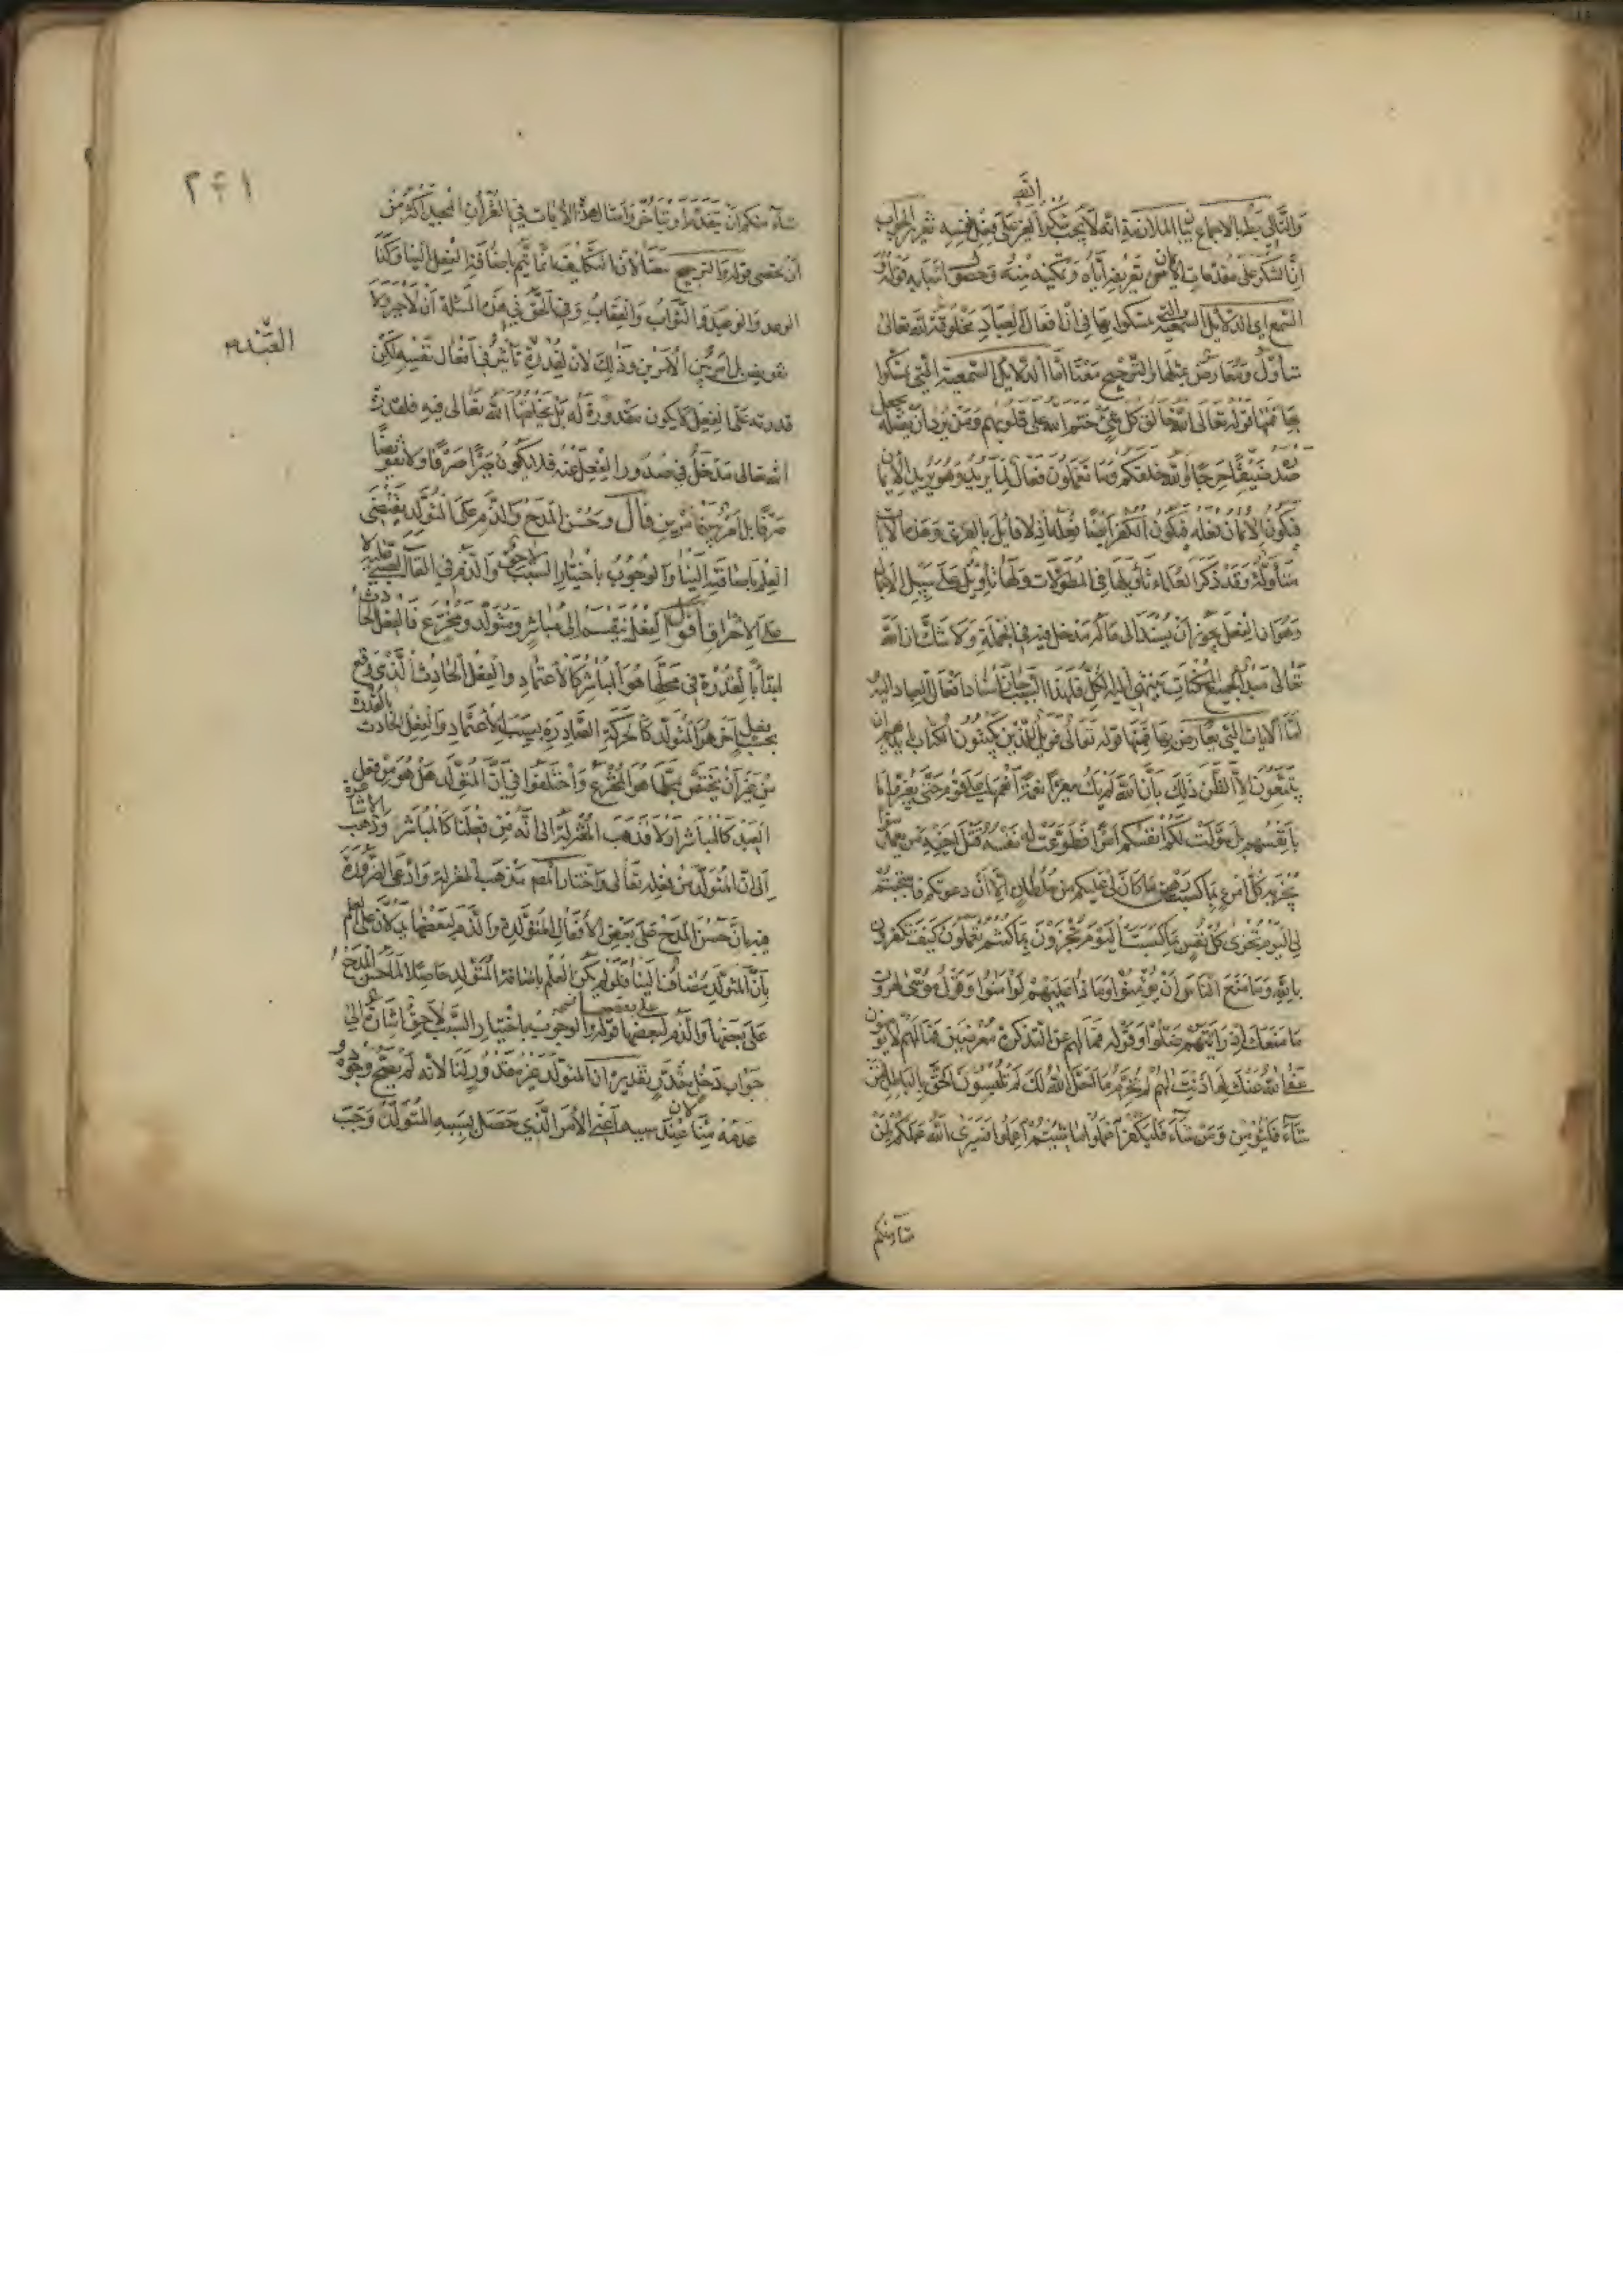 والتالى بط بالاجماع بيان الملازمة انه لا يجب شكر الغير على فعل نفسه تقرير الجواب
ان الشكر على مقدمات الايمان من تعريفه اياه وتمكينه منه وحصول اسبابه قوله و
السمع اى الدلايل السمعية التى تمسكوا بها فى ان افعال العباد مخلوقة لله تعالى
متأول ومعارض بمثله والترجيح معنا اما الدلايل السمعية التى تمسكوا
بها فمنها قوله تعالى الله خالق كل شئ ختم الله على قلوبهم ومن يرد ان يضله يجعل
صدره ضيقا حرجا والله خلقكم وما تعملون فعال لما يريد وهو يريد الايمان
فيكون الايمان فعله فيكون الكفر ايضا فعله اذ لا قايل بالفرق وهذه الايات
متأولة وقد ذكر العلماء تأويلها فى المطولات ولها تأويل على سبيل الاجمال
وهو ان الفعل يجوز ان يسند الى ما له مدخل فيه فى الجملة ولا شك ان الله
تعالى مبدأ لجميع الممكنات ينتهى اليه الكل فلهذا السبب جاز اسناد افعال العباد اليه
اما الايات التى تعارض بها فمنها قوله تعالى فويل للذين يكتبون الكتاب بايديهم ان
يتبعون الا الظن ذلك بان الله لم يك مغيرا نعمة انعمها على قوم حتى يغيروا ما
بانفسهم بل سولت لكم انفسكم امرا فطوعت له نفسه قتل اخيه من يعمل سوءا
يجز به كل امرئ بما كسب رهين ما كان لى عليكم من سلطان الا ان دعوتكم فاستجبتم
لى اليوم تجزى كل نفس بما كسبت اليوم تجزون بما كنتم تعملون كيف تكفرون
بالله وما منع الناس ان يؤمنوا وماذا عليهم لو امنوا وقول موسى لهرون
ما منعك اذ رايتهم ضلوا وقوله فما لهم عن التذكرة معرضين فما لهم لا يؤمنون
عفا الله عنك لم اذنت لهم لم تحرم ما احل الله لك لم تلبسون الحق بالباطل فمن
شاء فليؤمن ومن شاء فليكفر اعملوا ما شئتم اعملوا فسيرى الله عملكم لمن
شاء منكم
٢٤١
شاء منكم ان يتقدم او يتأخر وامثال هذه الايات فى القرآن المجيد اكثر من
ان يحصى قوله والترجيح معنا لان التكليف انما يتم باضافة الفعل الينا وكذا
الوعد والوعيد والثواب والعقاب وفيه الحق فى هذه المسئلة ان لا جبر ولا
تفويض بل امر بين الامرين وذلك لان لقدرة العبد تأثيرا فى افعال نفسه لكن
قدرته على الفعل لا يكون مقدورة له بل يخلقها الله تعالى فيه فلقدرة
الله تعالى مدخل فى صدور الفعل عنه فلا يكون جبرا صرفا ولا تفويضا
صرفا بل امر بين امرين قال وحسن المدح والذم على المتولد يقتضى
العلم باضافته الينا والوجوب باختيار السبب لاحق والذم فى القاء الصبى عليه لا
على الاحراق اقول الفعل ينقسم الى مباشر ومتولد ومخترع فالفعل الحادث
ابتدأ بالقدرة فى محلها هو المباشر كالاعتماد والفعل الحادث الذى وقع
بحسب فعل آخر هو المتولد كالحركة الصادرة بسبب الاعتماد والفعل الحادث بالقدرة
من غير ان يختص بمحلها هو المخترع واختلفوا فى ان المتولد هل هو من فعل
العبد كالمباشر اولا فذهب المعتزلة الى انه من فعلنا كالمباشر وذهب الاشاعرة
الى ان المتولد من فعله تعالى واختار المص مذهب المعتزلة وادعى الضرورة
فيه بان حسن المدح على بعض الافعال المتولدة والذم لبعضها يدلان على العلم
بان المتولد مضاف الينا فلو لم يكن العلم باضافة المتولد حاصلا لما حسن المدح
على بعضها والذم لبعضها قوله والوجوب باختيار السبب لاحق اشارة الى
جواب دخل مقدر تقديره ان المتولد غير مقدور لنا لانه لم يصح وجوده و
عدمه منا عند سببه لان اعنى الامر الذى حصل بسببه المتولد وجب